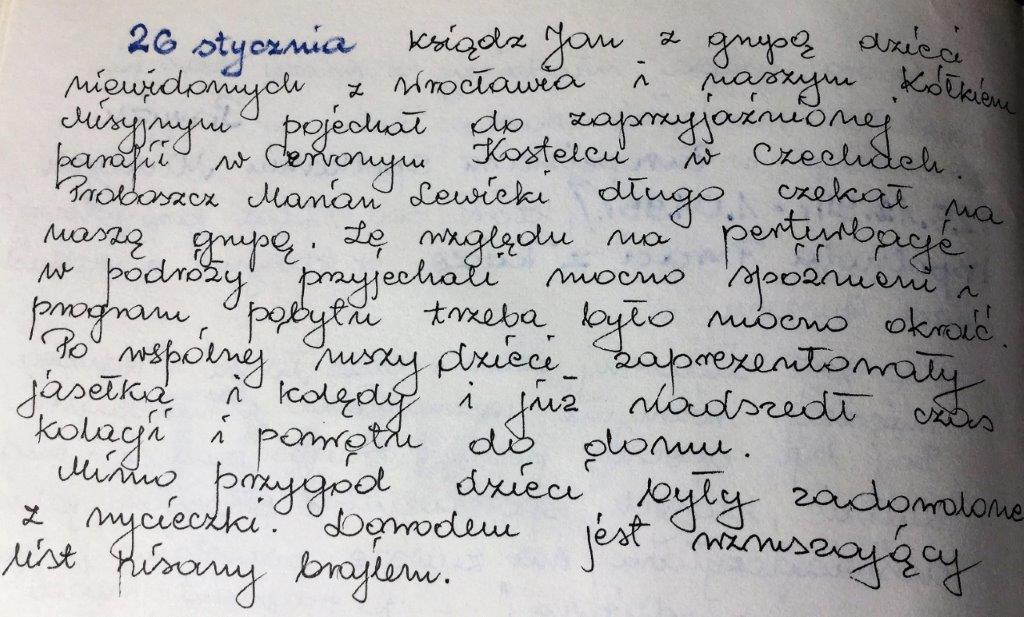 26 stycznia ksiądz Jan z grupą dzieci
niewidomych z Wrocławia i naszym Kółkiem
Misyjnym pojechał do zaprzyjaźnionej
parafii w Cervonym Kostelcu w Czechach.
Proboszcz Marian Lewicki długo czekał na
naszą grupą. Ze względu na perturbacje
w podróży przyjechali mocno spóźnieni i
program pobytu trzeba było mocno okroić.
Po wspólnej mszy dzieci zaprezentowały
jasełka i kolędy i już nadszedł czas
kolacji i powrotu do domu.
Mimo przygód dzieci były zadowolone
z wycieczki. Dowodem jest wzruszający
list pisany brajlem.